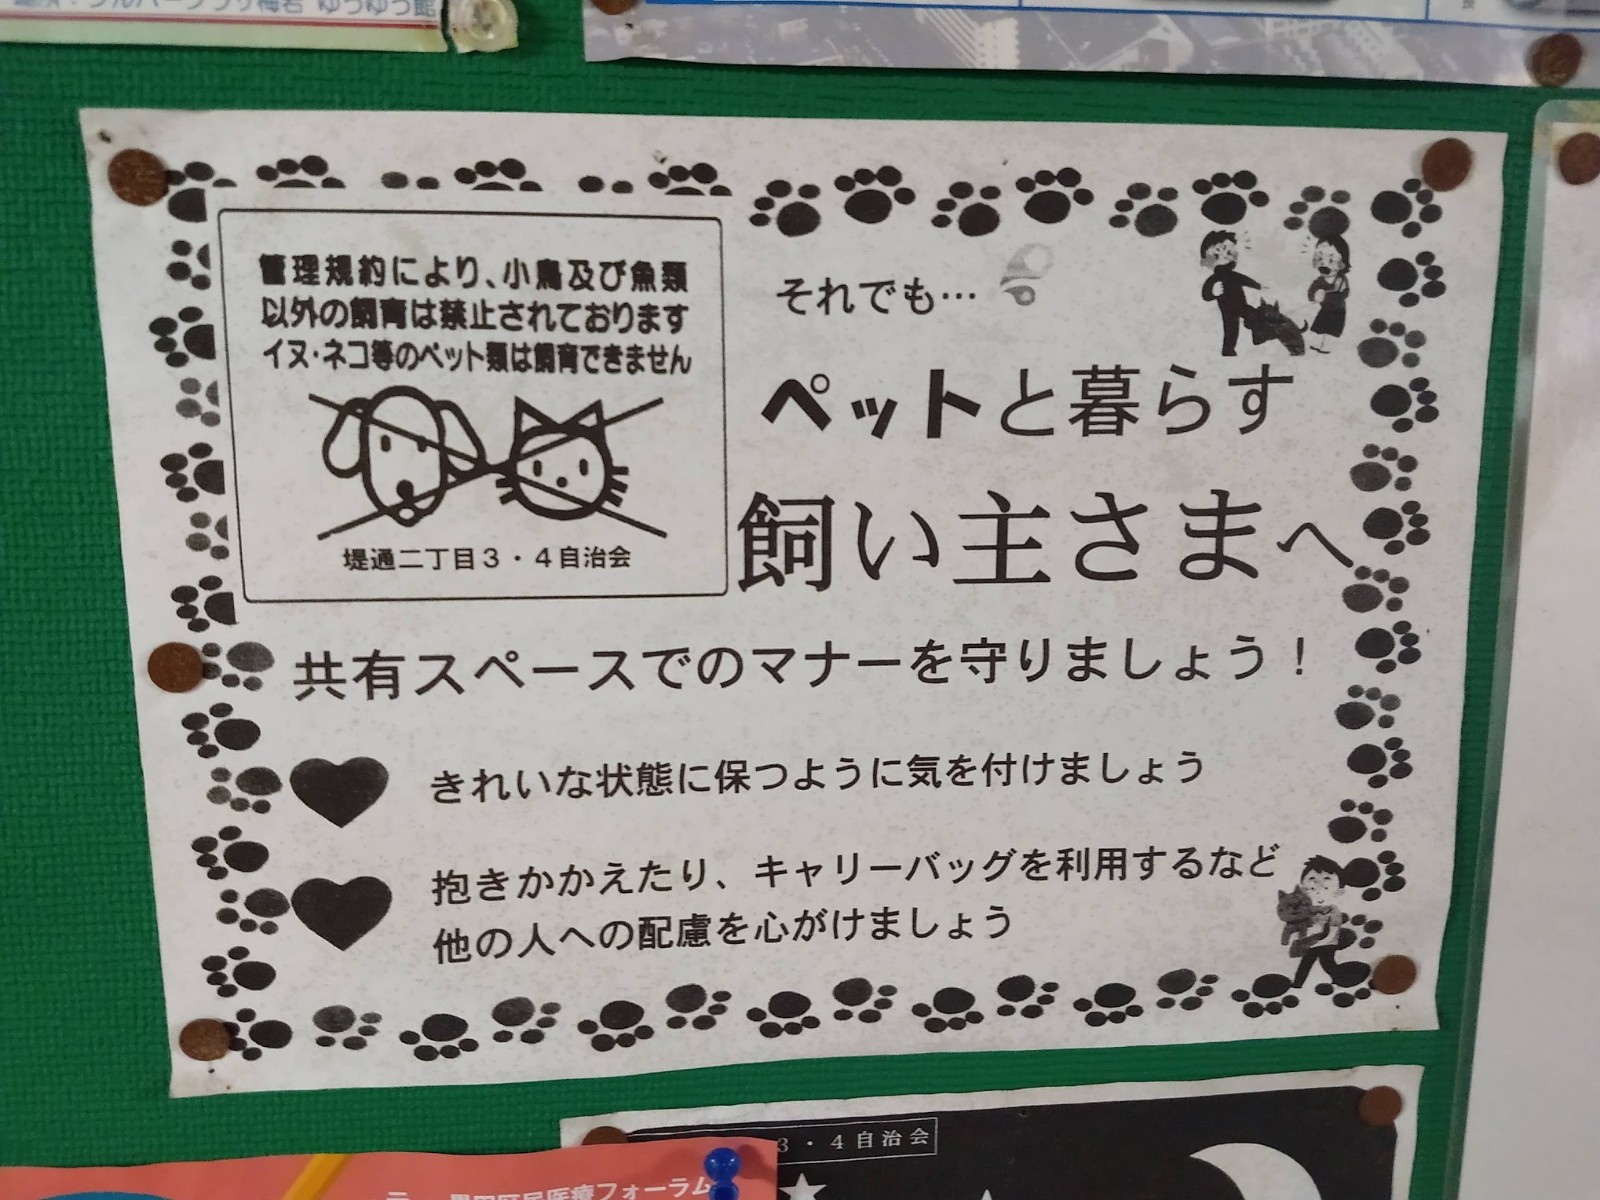 ゆうゆう館
管理規約により、小鳥及び魚類
以外の飼育は禁止されております
イヌ・ネコ等のペット類は飼育できません
堤通二丁目３・４自治会
それでも…
ペットと暮らす
飼い主さまへ
共有スペースでのマナーを守りましょう！
きれいな状態に保つように気を付けましょう
抱きかかえたり、キャリーバッグを利用するなど
他の人への配慮を心がけましょう
３・４自治会
区民医療フォーラム